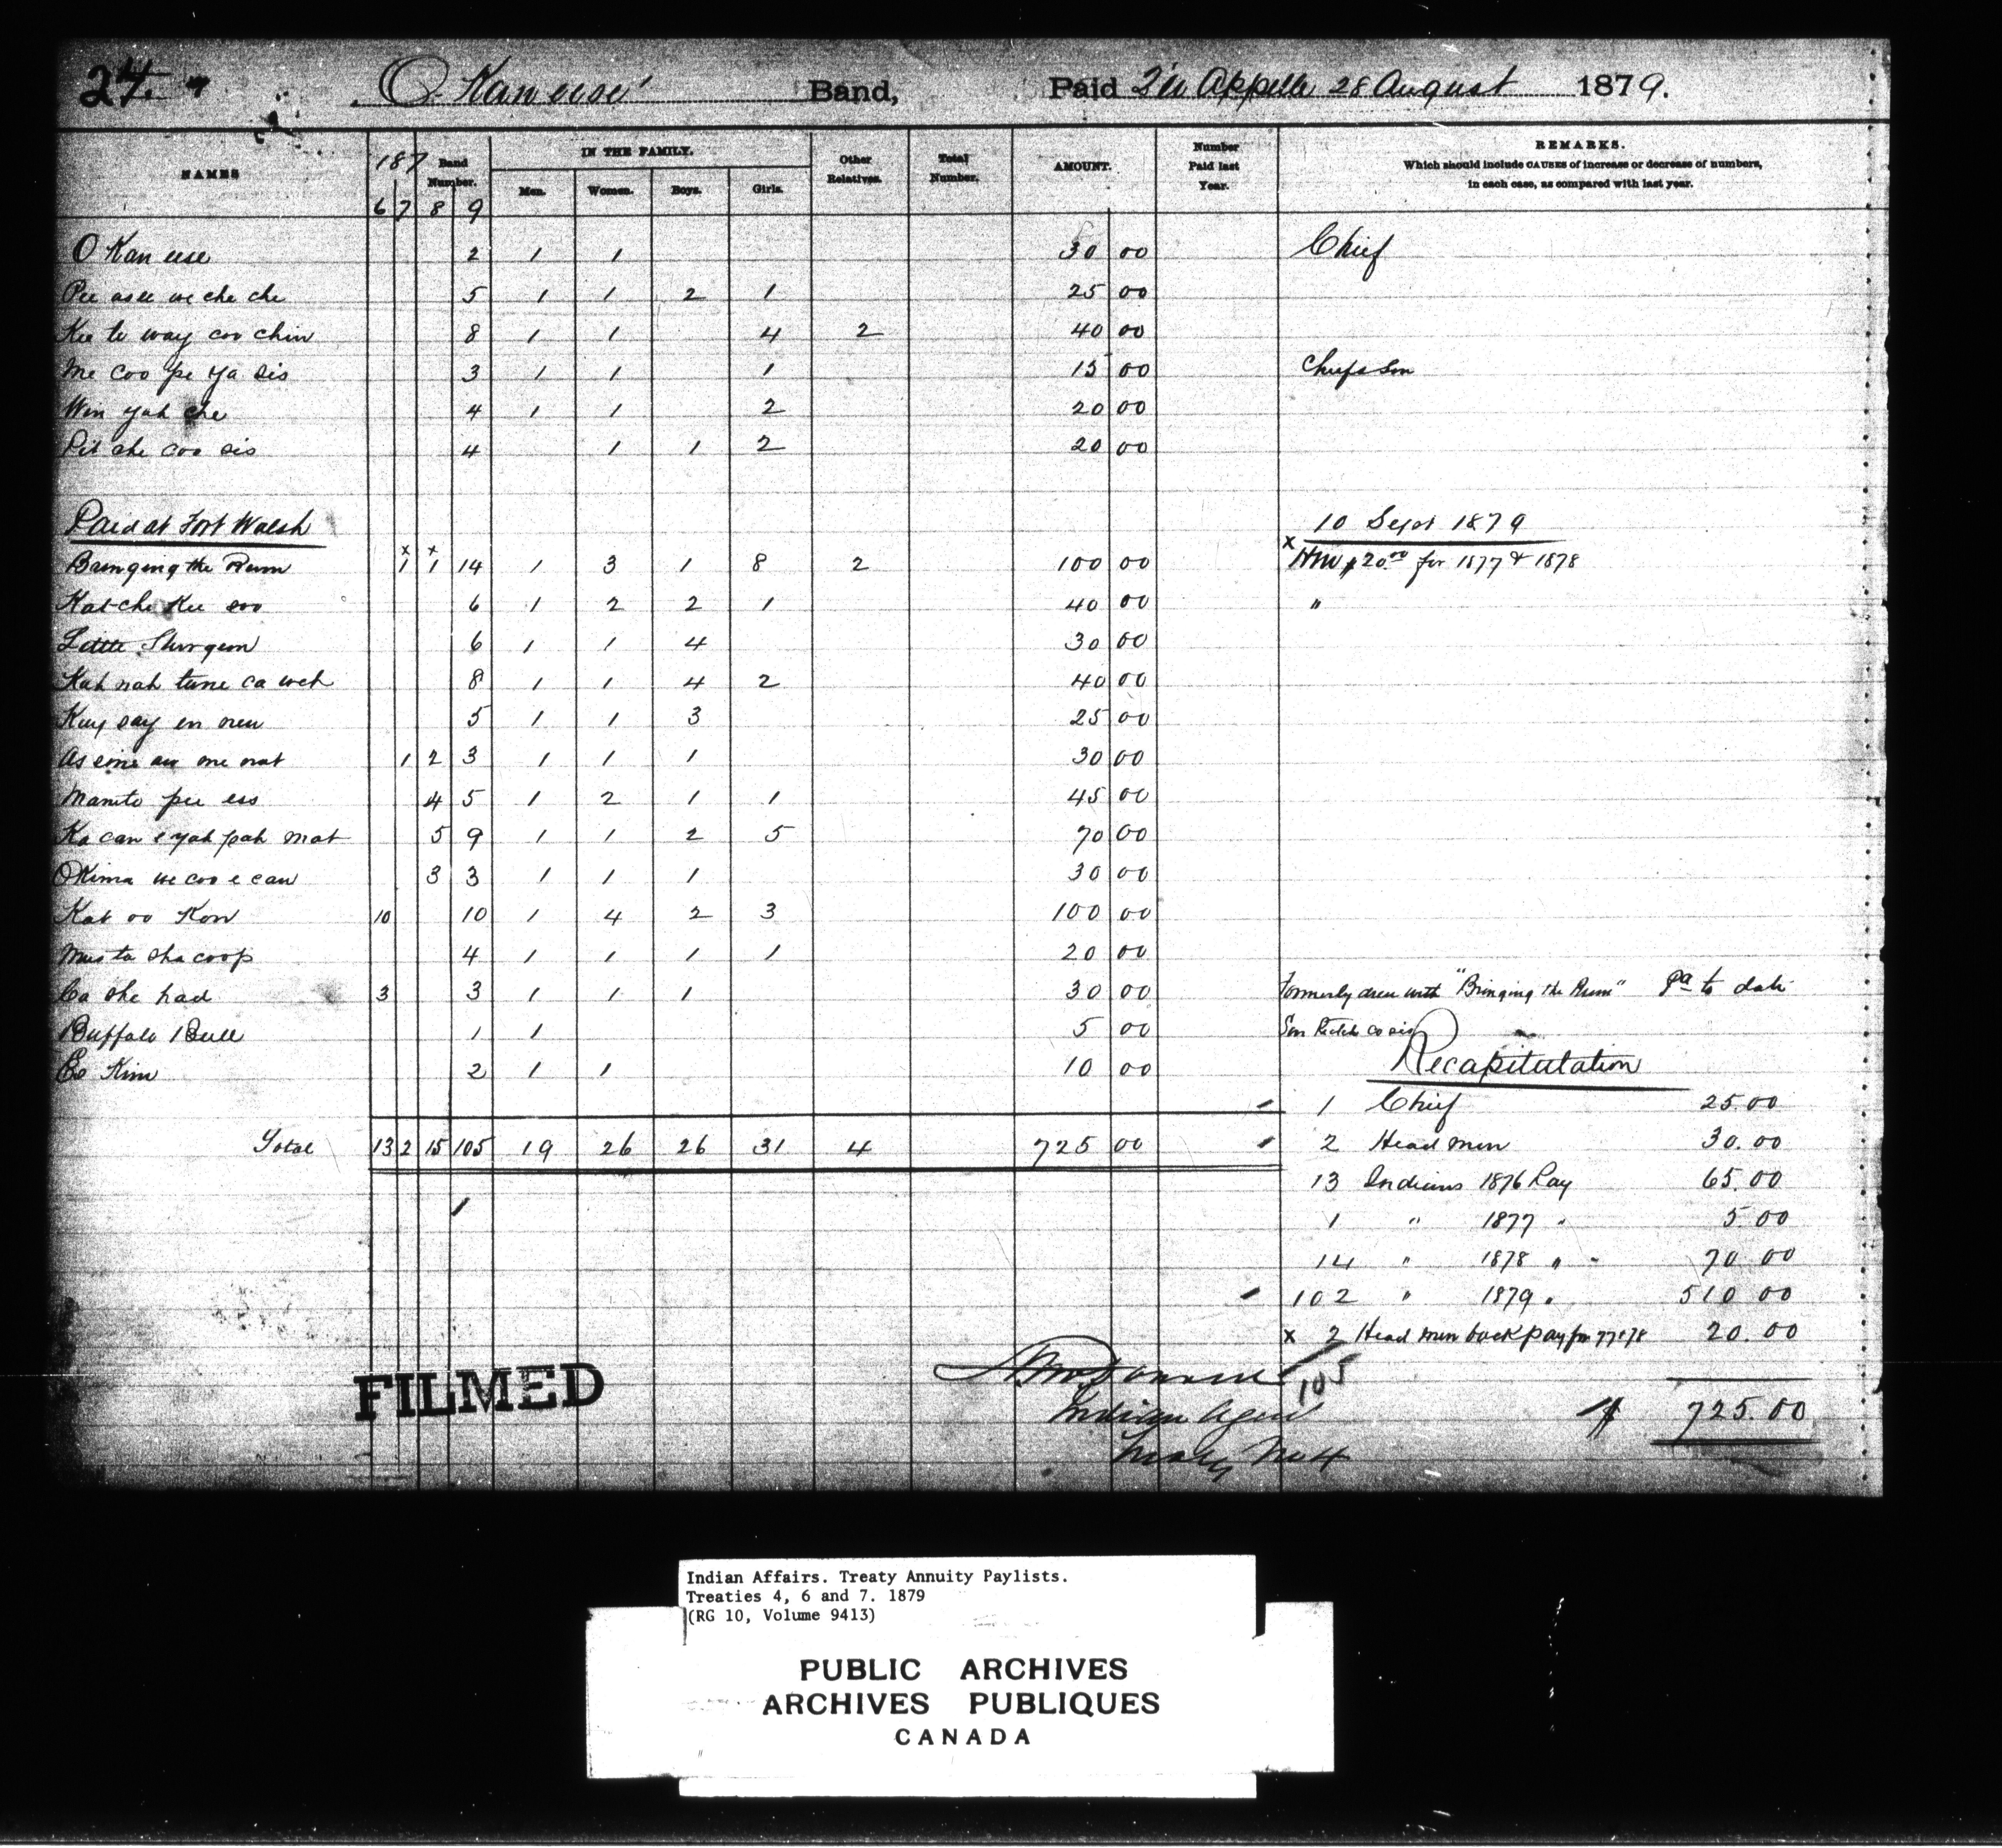 24
O'Kan ese Band, Paid Qu'Appelle 28 August 1879.
NAMES 187 Band Number. IN THE FAMILY. Other Relatives. Total Number. AMOUNT. Number Paid last Year. REMARKS.
Which should include CAUSES of increase or decrease of numbers, in each case, as compared with last year.
6 7 8 9 Men. Women. Boys. Girls.
O Kan ese 2 1 1 30 00 Chief
Pee asee we che che 5 1 1 2 1 25 00
Kee te way coo chin 8 1 1 4 2 40 00
Me coo pe ya sis 3 1 1 1 15 00 Chiefs Son
Win yah che 4 1 1 2 20 00
Pit che coo sis 4 1 1 2 20 00
Paid at Fort Walsh 10 Sept 1879
x x
Bringing the Rum 1 1 14 1 3 1 8 2 100 00 x HM $20.00 for 1877 & 1878
Kat che Kee soo 6 1 2 2 1 40 00 "
Little Sturgeon 6 1 1 4 30 00
Kah nah tume ca weh 8 1 1 4 2 40 00
Kay say en new 5 1 1 3 25 00
As sine au me nat 1 2 3 1 1 1 30 00
Manito pee ess 4 5 1 2 1 1 45 00
Ka can e yah pah mat 5 9 1 1 2 5 70 00
Okima we coo e can 3 3 1 1 1 30 00
Kat oo Kon 10 10 1 4 2 3 100 00
Mus ta sha coop 4 1 1 1 1 20 00
Ca she had 3 3 1 1 1 30 00 Formerly drew with "Bringing the Rum" Pd to date
Buffalo Bull 1 1 5 00 Son
Es Kim 2 1 1 10 00 Recapitulation
1 Chief 25.00
Total 13 2 15 105 19 26 26 31 4 725 00 2 Head men 30.00
13 Indians 1876 Pay 65.00
1 " 1877 " 5.00
14 " 1878 " 70 00
102 " 1879 " 510 00
x 2 Head men back pay for 77 & 78 20.00
105
Indian Agent $ 725.00
Treaty No 4
FILMED
Indian Affairs. Treaty Annuity Paylists.
Treaties 4, 6 and 7. 1879
(RG 10, Volume 9413)
PUBLIC ARCHIVES
ARCHIVES PUBLIQUES
CANADA